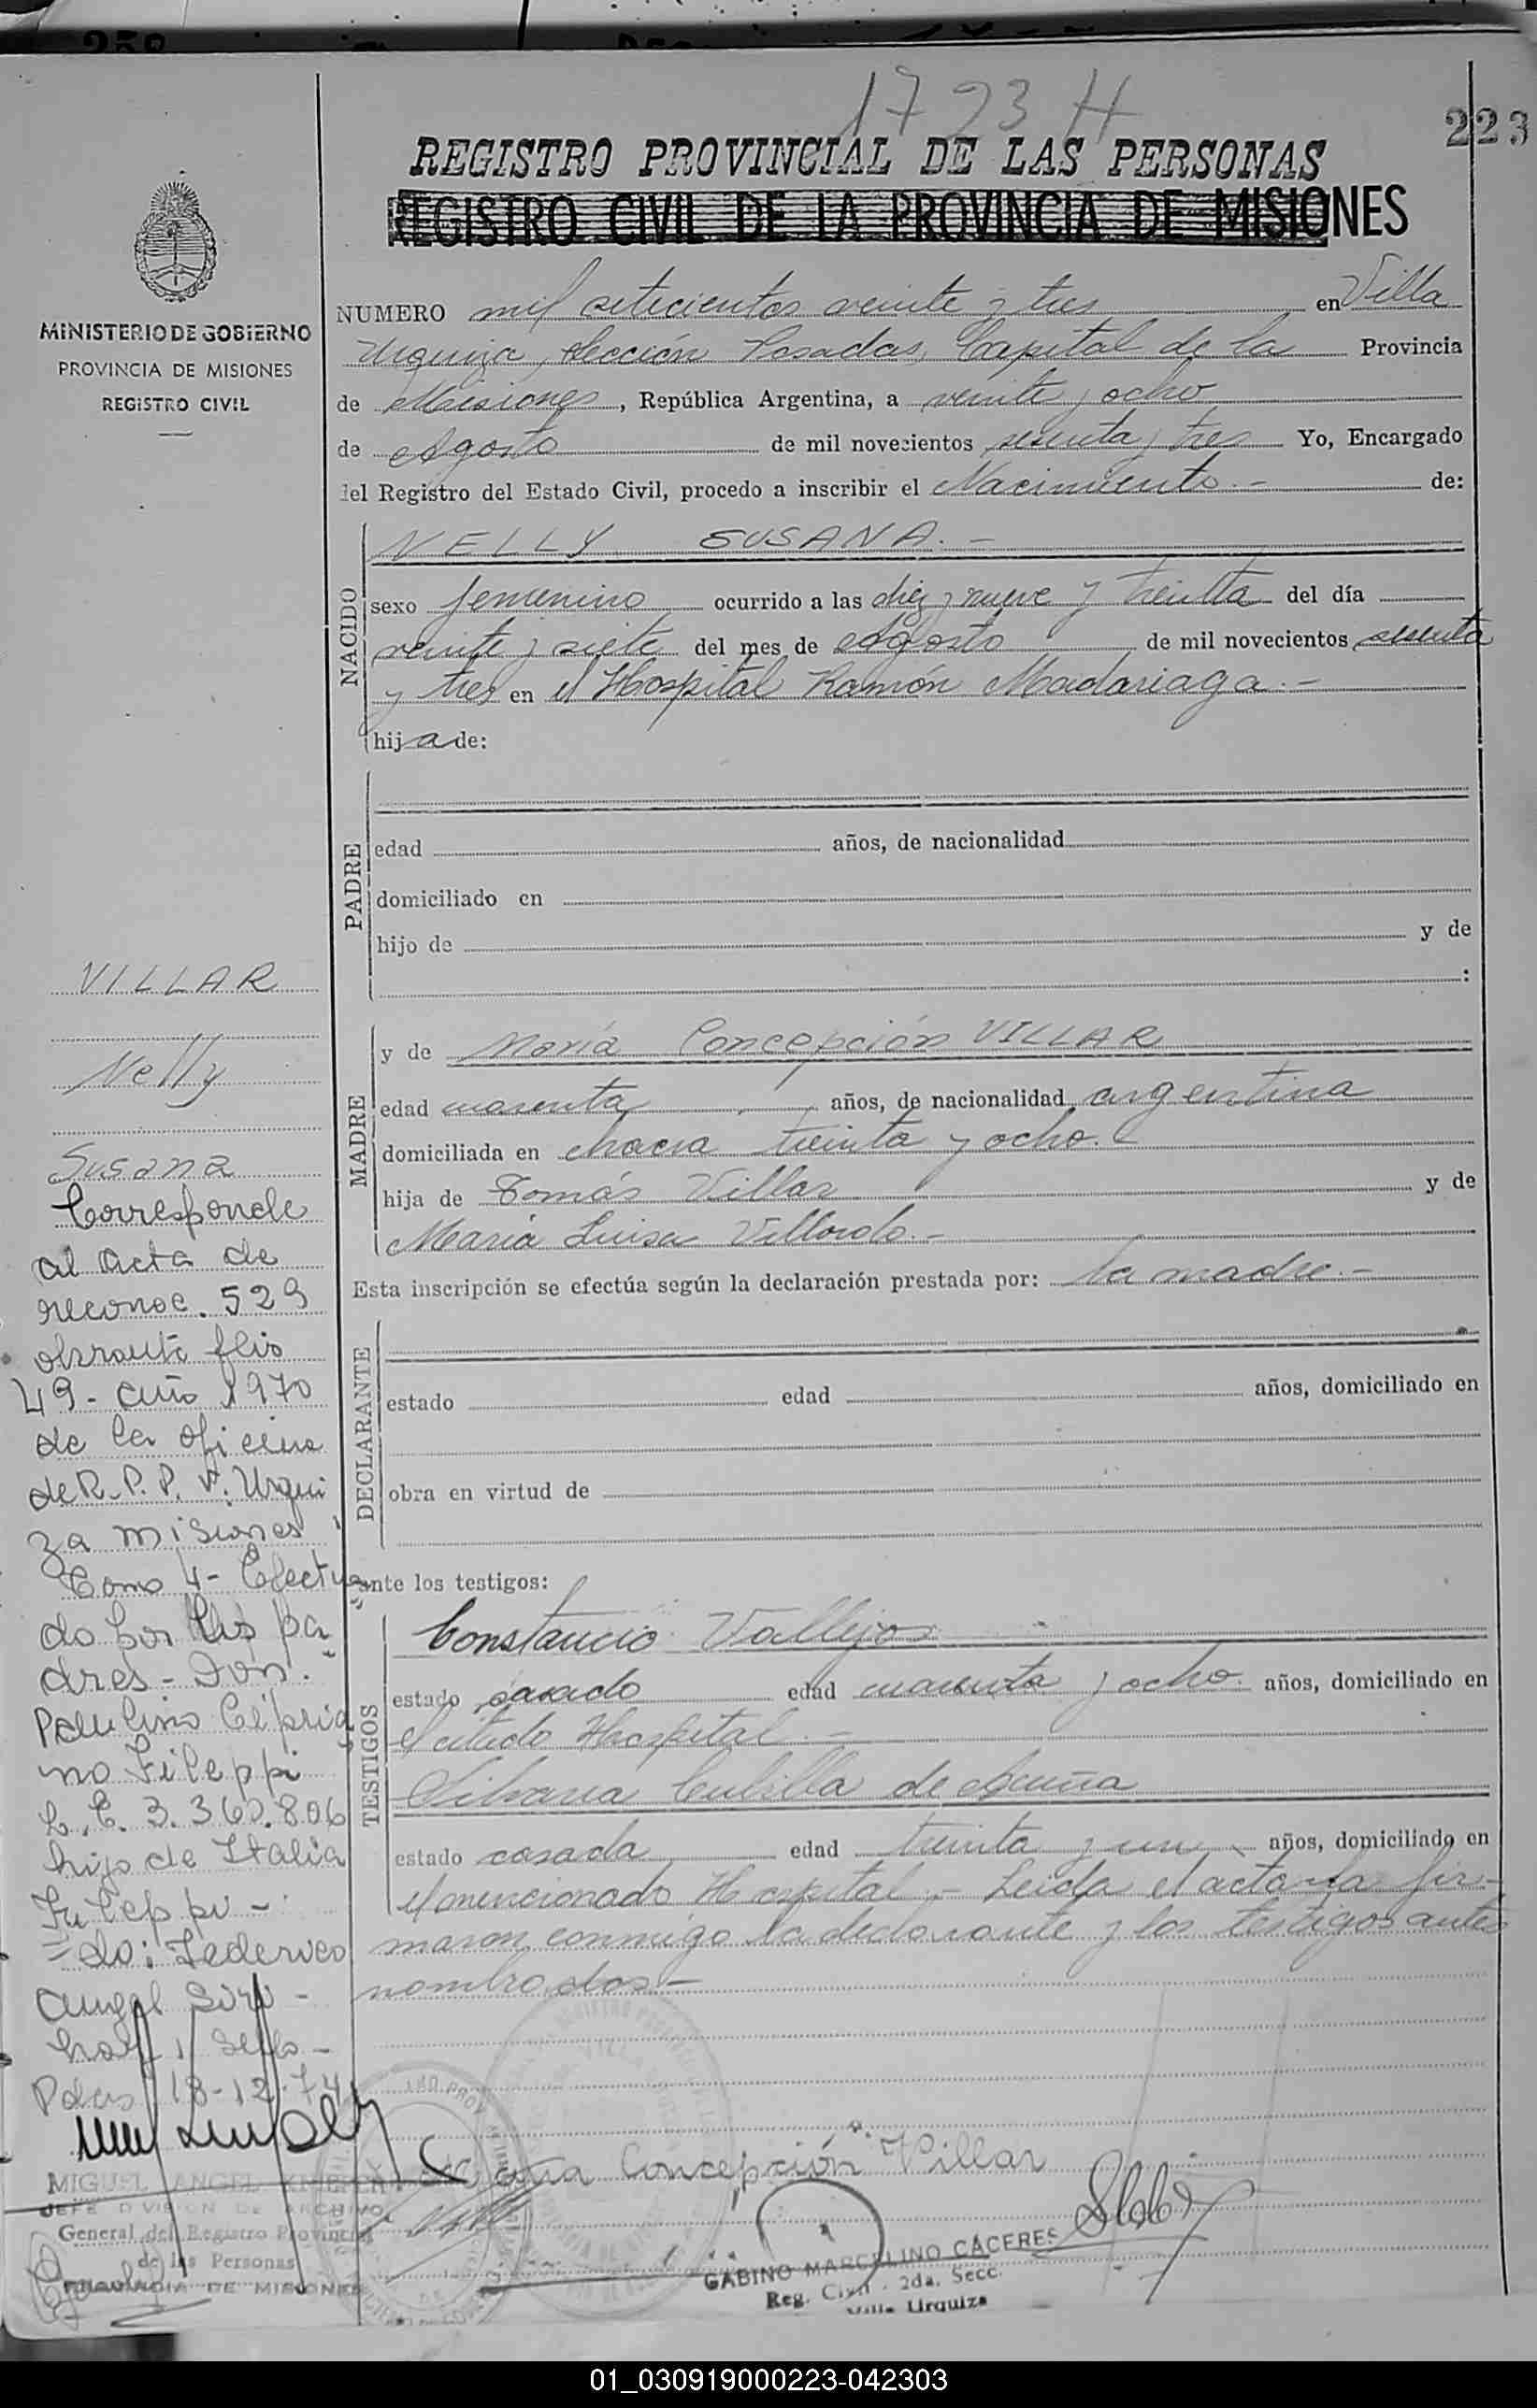 1723 H
223
REGISTRO PROVINCIAL DE LAS PERSONAS
REGISTRO CIVIL DE LA PROVINCIA DE MISIONES
MINISTERIO DE GOBIERNO
PROVINCIA DE MISIONES
REGISTRO CIVIL
NUMERO mil setecientos veinte y tres en Villa
Urquiza, Sección Posadas, Capital de la Provincia
de Misiones, República Argentina, a veinte y ocho
de Agosto de mil novecientos sesenta y tres Yo, Encargado
del Registro del Estado Civil, procedo a inscribir el Nacimiento.- de:
NACIDO
NELLY SUSANA.-
sexo femenino ocurrido a las diez y nueve y treinta del día
veinte y siete del mes de Agosto de mil novecientos sesenta
y tres en el Hospital Ramón Madariaga.-
hija de:
PADRE
edad años, de nacionalidad
domiciliado en
hijo de y de
:
MADRE
y de María Concepción VILLAR
edad cuarenta años, de nacionalidad argentina
domiciliada en chacra treinta y ocho.-
hija de Tomás Villar y de
María Luisa Villordo.-
Esta inscripción se efectúa según la declaración prestada por: la madre.-
DECLARANTE
estado edad años, domiciliado en
obra en virtud de
ante los testigos:
TESTIGOS
Constancio Vallejos
estado casado edad cuarenta y ocho. años, domiciliado en
el citado Hospital.-
Silvana Cubilla de Acuña
estado casada edad treinta y un años, domiciliado en
el mencionado Hospital.- Leída el acta la fir-
maron conmigo la declarante y los testigos antes
nombrados.-
VILLAR
Nelly
Susana
Corresponde
al acta de
reconoc. 529
obrante flio
49- año 1970
de la oficina
de R.P.P. V. Urqui
za misiones
Tomo 4- Efectua
do por los pa
dres- Don.
Paulino Cipria
no Fileppi
L.E. 3.360.806
hijo de Italia
Fileppi-
do: Federico
Angel
hay 1 sello-
Pdas 18-12-74
MIGUEL ANGEL
JEFE DIVISION DE ARCHIVO
General del Registro Provincial
de las Personas
PROVINCIA DE MISIONES
Concepción Villar
GABINO MARCELINO CACERES
Reg. Civil - 2da. Secc.
Villa Urquiza
01_030919000223-042303